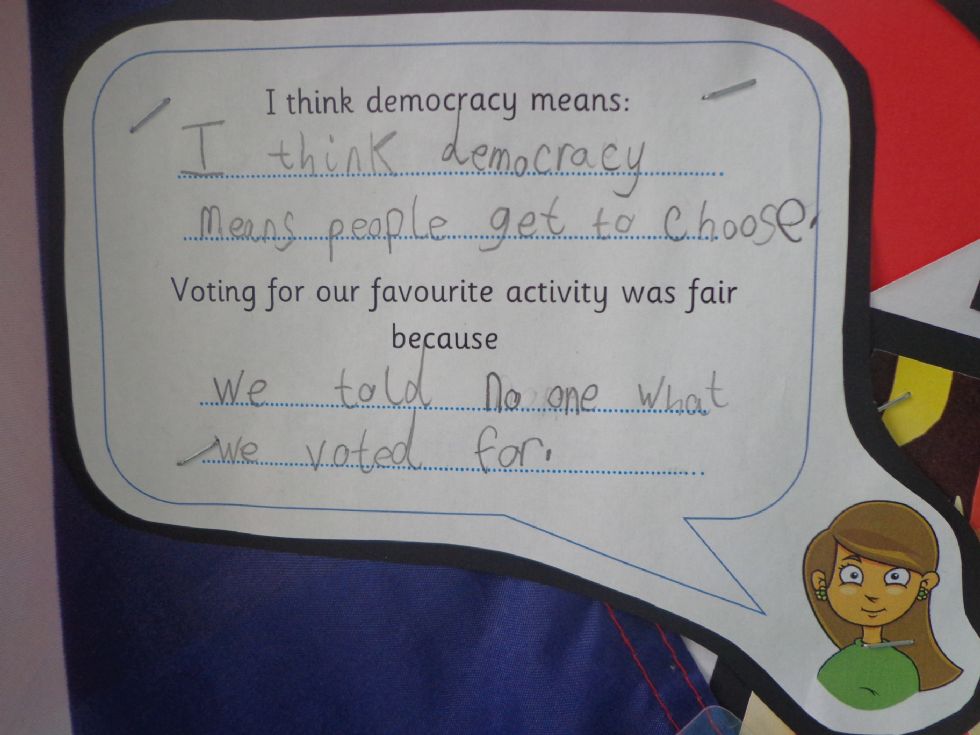 I think democracy means:
I think democracy
means people get to choose.
Voting for our favourite activity was fair
because
we told no one what
we voted for.